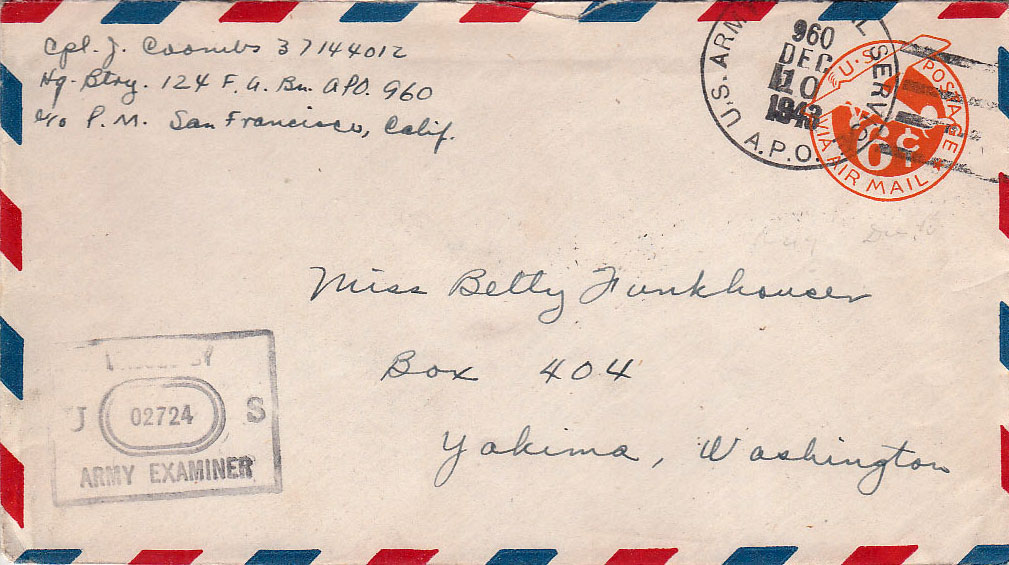 Cpl. J. Coombs 37144012
Hq. Btry. 124 F. A. Bn. APO. 960
c/o P. M. San Francisco, Calif.
U.S. ARMY POSTAL SERVICE
A.P.O.
960
DEC
10
1943
U.S. POSTAGE
6c
VIA AIR MAIL
Miss Betty Funkhouser
Box 404
Yakima, Washington
BY
U S
02724
ARMY EXAMINER